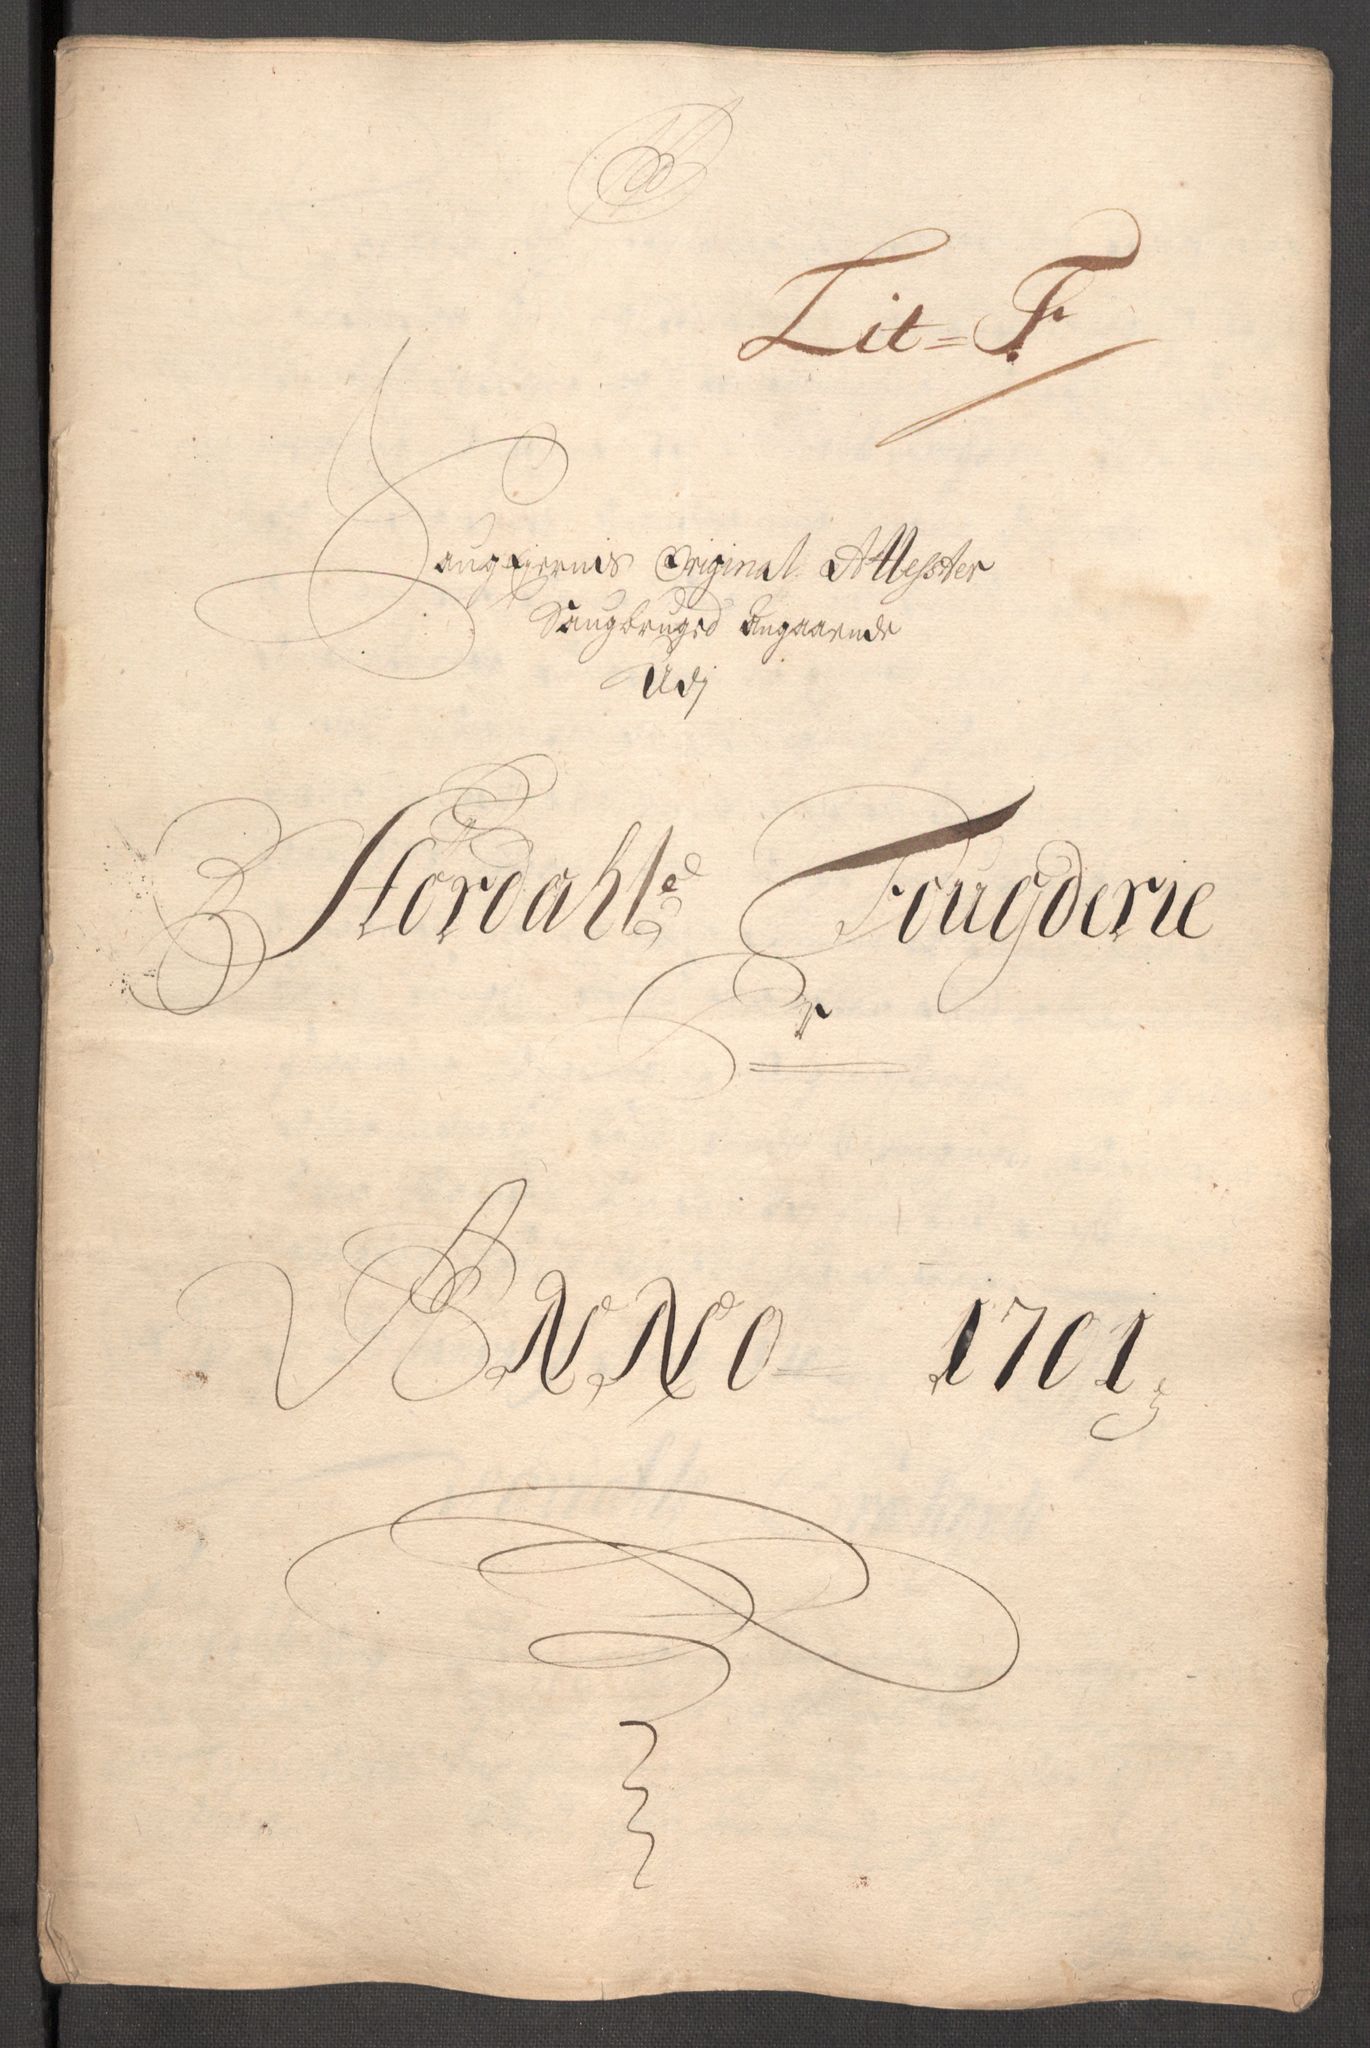 Lit = F
Saugeiernis Original Attesster
Saugbruged Angaaende
Udj
Stördahls Fougderie
Pr
Anno = 1701